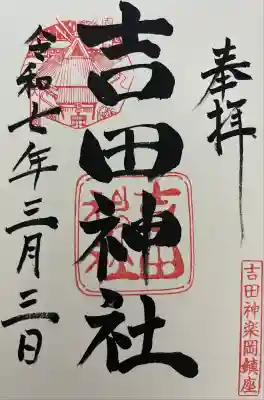 奉拝
吉田神楽岡鎮座
吉田神社
令和七年三月三日